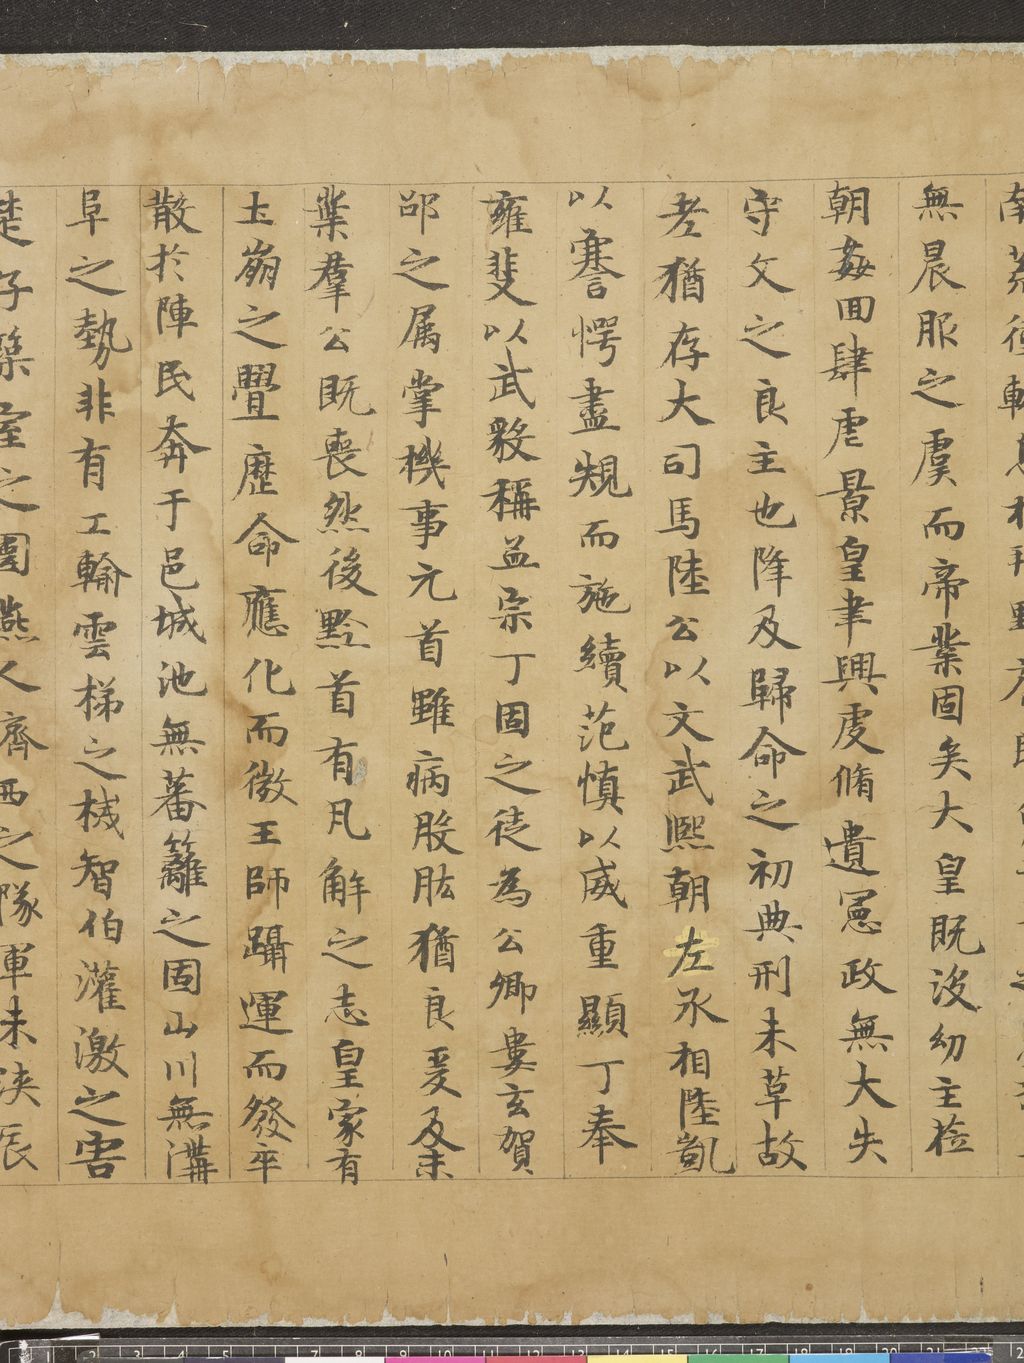 無晨服之虞而帝業固矣大皇既没幼主莅
朝姦回肆虐景皇聿興虔脩遺憲政無大失
守文之良主也降及歸命之初典刑未草故
老猶存大司馬陸公以文武熙朝左丞相陸凱
以謇愕盡規而施績范慎以威重顯丁奉
雍斐以武毅稱孟宗丁固之徒為公卿婁玄賀
邵之属掌機事元首雖病股肱猶良爰及末
葉羣公既喪然後黔首有凡解之志皇家有
土崩之舋歷命應化而微王師躡運而發卒
散於陣民奔于邑城池無蕃籬之固山川無溝
阜之勢非有工輸雲梯之械智伯灌激之害
楚子築室之圍燕人齊西之隊軍未浹辰